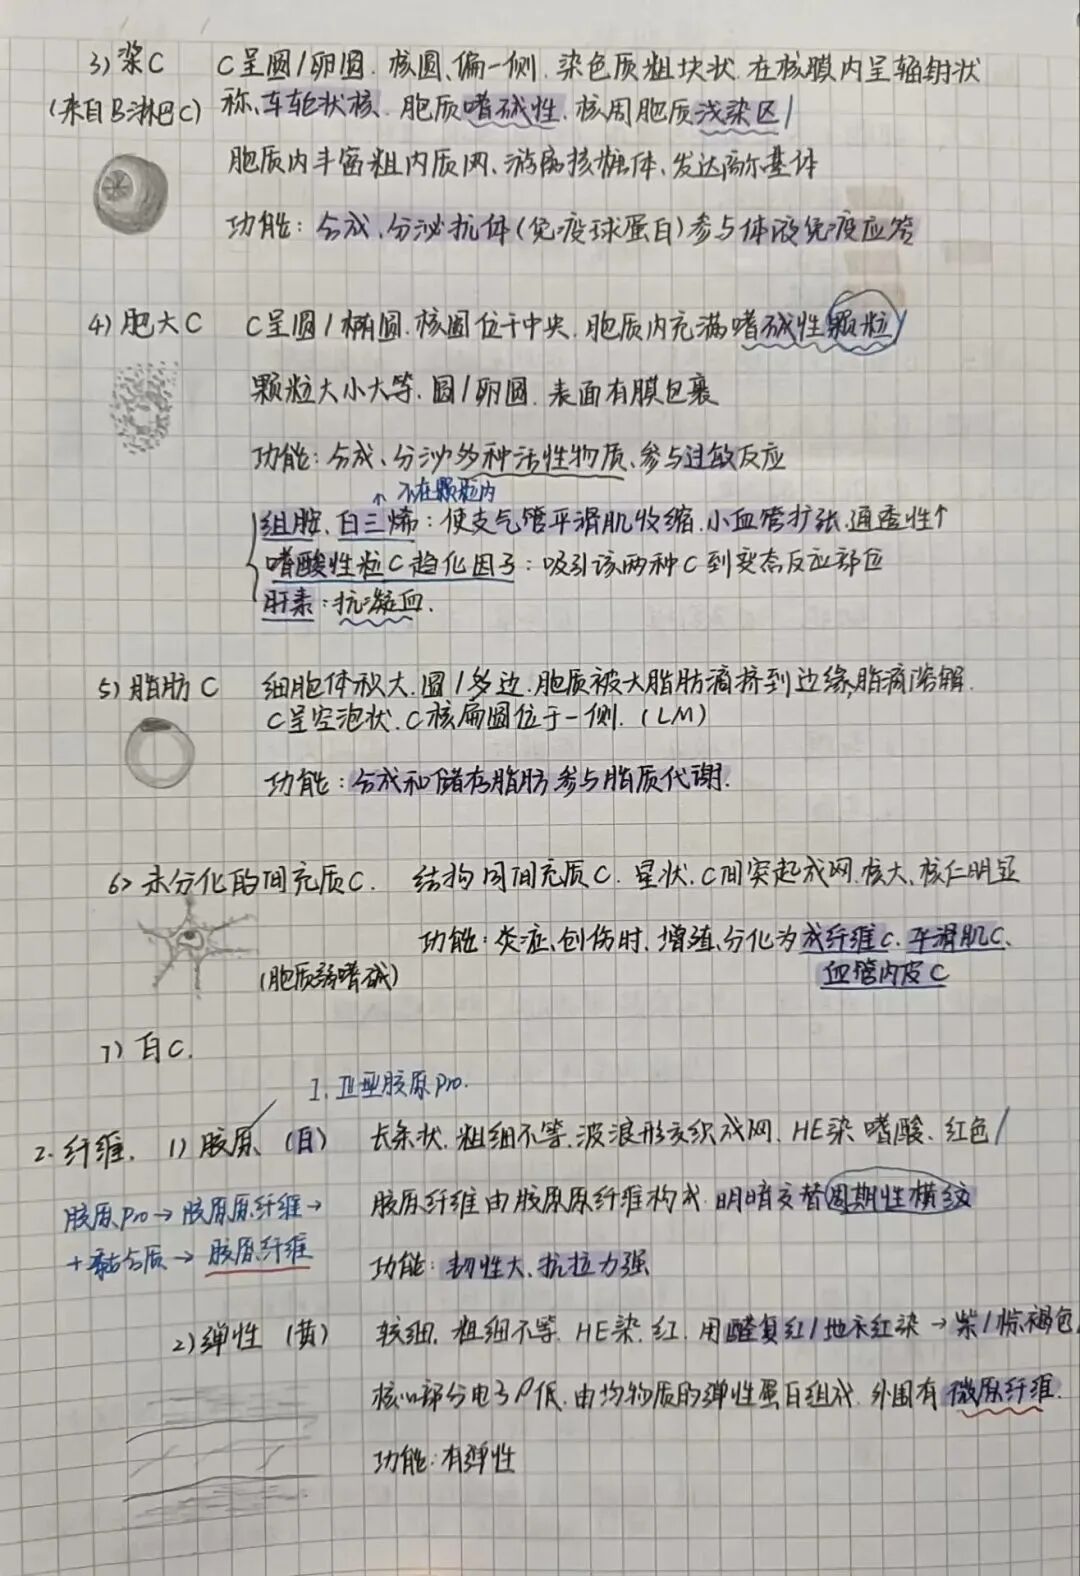 3) 浆C C呈圆/卵圆.核圆、偏一侧.染色质粗块状.在核膜内呈辐射状
(来自B淋巴C) 称、车轮状核.胞质嗜碱性.核周胞质浅染区/
胞质内丰富粗内质网、游离核糖体、发达高尔基体
功能:合成、分泌抗体(免疫球蛋白)参与体液免疫应答
4) 肥大C C呈圆/椭圆.核圆位于中央.胞质内充满嗜碱性颗粒/
颗粒大小大等.圆/卵圆.表面有膜包裹
功能:合成、分泌多种活性物质、参与过敏反应
↑不在颗粒内
组胺、白三烯:使支气管平滑肌收缩.小血管扩张.通透性↑
嗜酸性粒C趋化因子:吸引该两种C到变态反应部位
肝素:抗凝血.
5) 脂肪C 细胞体积大.圆/多边.胞质被大脂肪滴挤到边缘,脂滴溶解.
C呈空泡状.C核扁圆位于一侧.(LM)
功能:合成和储存脂肪.参与脂质代谢.
6) 未分化的间充质C. 结构同间充质C.星状.C间突起成网.核大、核仁明显
功能:炎症、创伤时.增殖、分化为成纤维C.平滑肌C、
(胞质弱嗜碱) 血管内皮C
7) 白C.
I.Ⅲ型胶原pro.
2.纤维. 1)胶原(白) 长条状.粗细不等.波浪形交织成网.HE染 嗜酸.红色/
胶原pro→胶原原纤维→ 胶原纤维由胶原原纤维构成.明暗交替周期性横纹
+黏合质→胶原纤维 功能:韧性大、抗拉力强
2)弹性(黄) 较细.粗细不等.HE染.红.用醛复红/地衣红染→紫/棕褐色
核心部分电子ρ低.由均物质的弹性蛋白组成.外围有微原纤维.
功能:有弹性